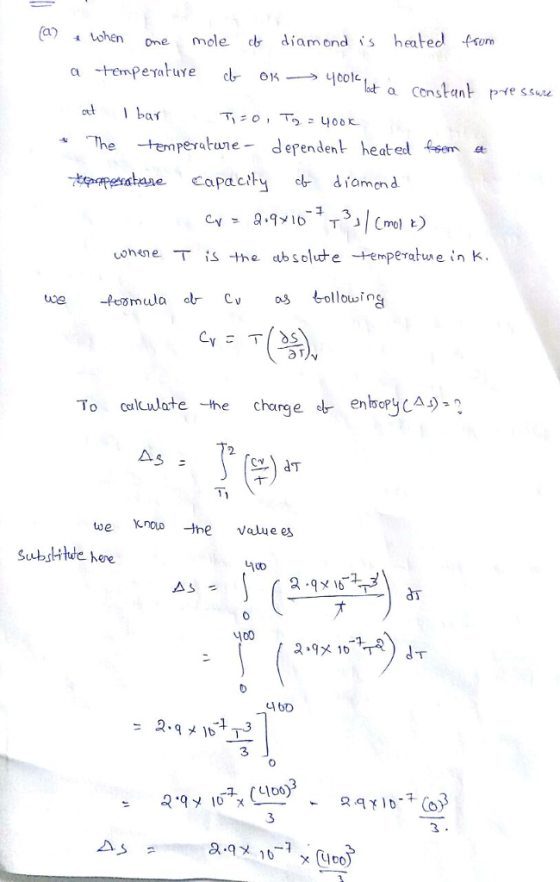 (a) * When one mole of diamond is heated from
a temperature of 0K → 400K at a constant pressure
at 1 bar T₁ = 0, T₂ = 400K
* The temperature - dependent heated from a
temperature capacity of diamond
Cv = 2.9×10⁻⁷ T³ J/(mol K)
where T is the absolute temperature in K.
we formula of Cv as following
Cv = T(∂S/∂T)v
To calculate the change of entropy (ΔS) = ?
ΔS = ∫T₁^T₂ (Cv/T) dT
we know the valuees
Substitute here
ΔS = ∫₀⁴⁰⁰ (2.9×10⁻⁷T³/T) dT
= ∫₀⁴⁰⁰ (2.9×10⁻⁷T²) dT
= 2.9×10⁻⁷ T³/3 ]₀⁴⁰⁰
= 2.9×10⁻⁷ × (400)³/3 - 2.9×10⁻⁷ (0)³/3.
ΔS = 2.9×10⁻⁷ × (400)³/3